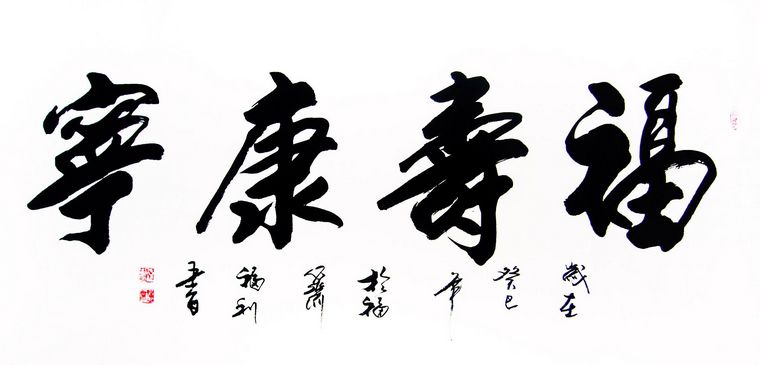 福壽康寧
歲在癸巳年於福 福利書